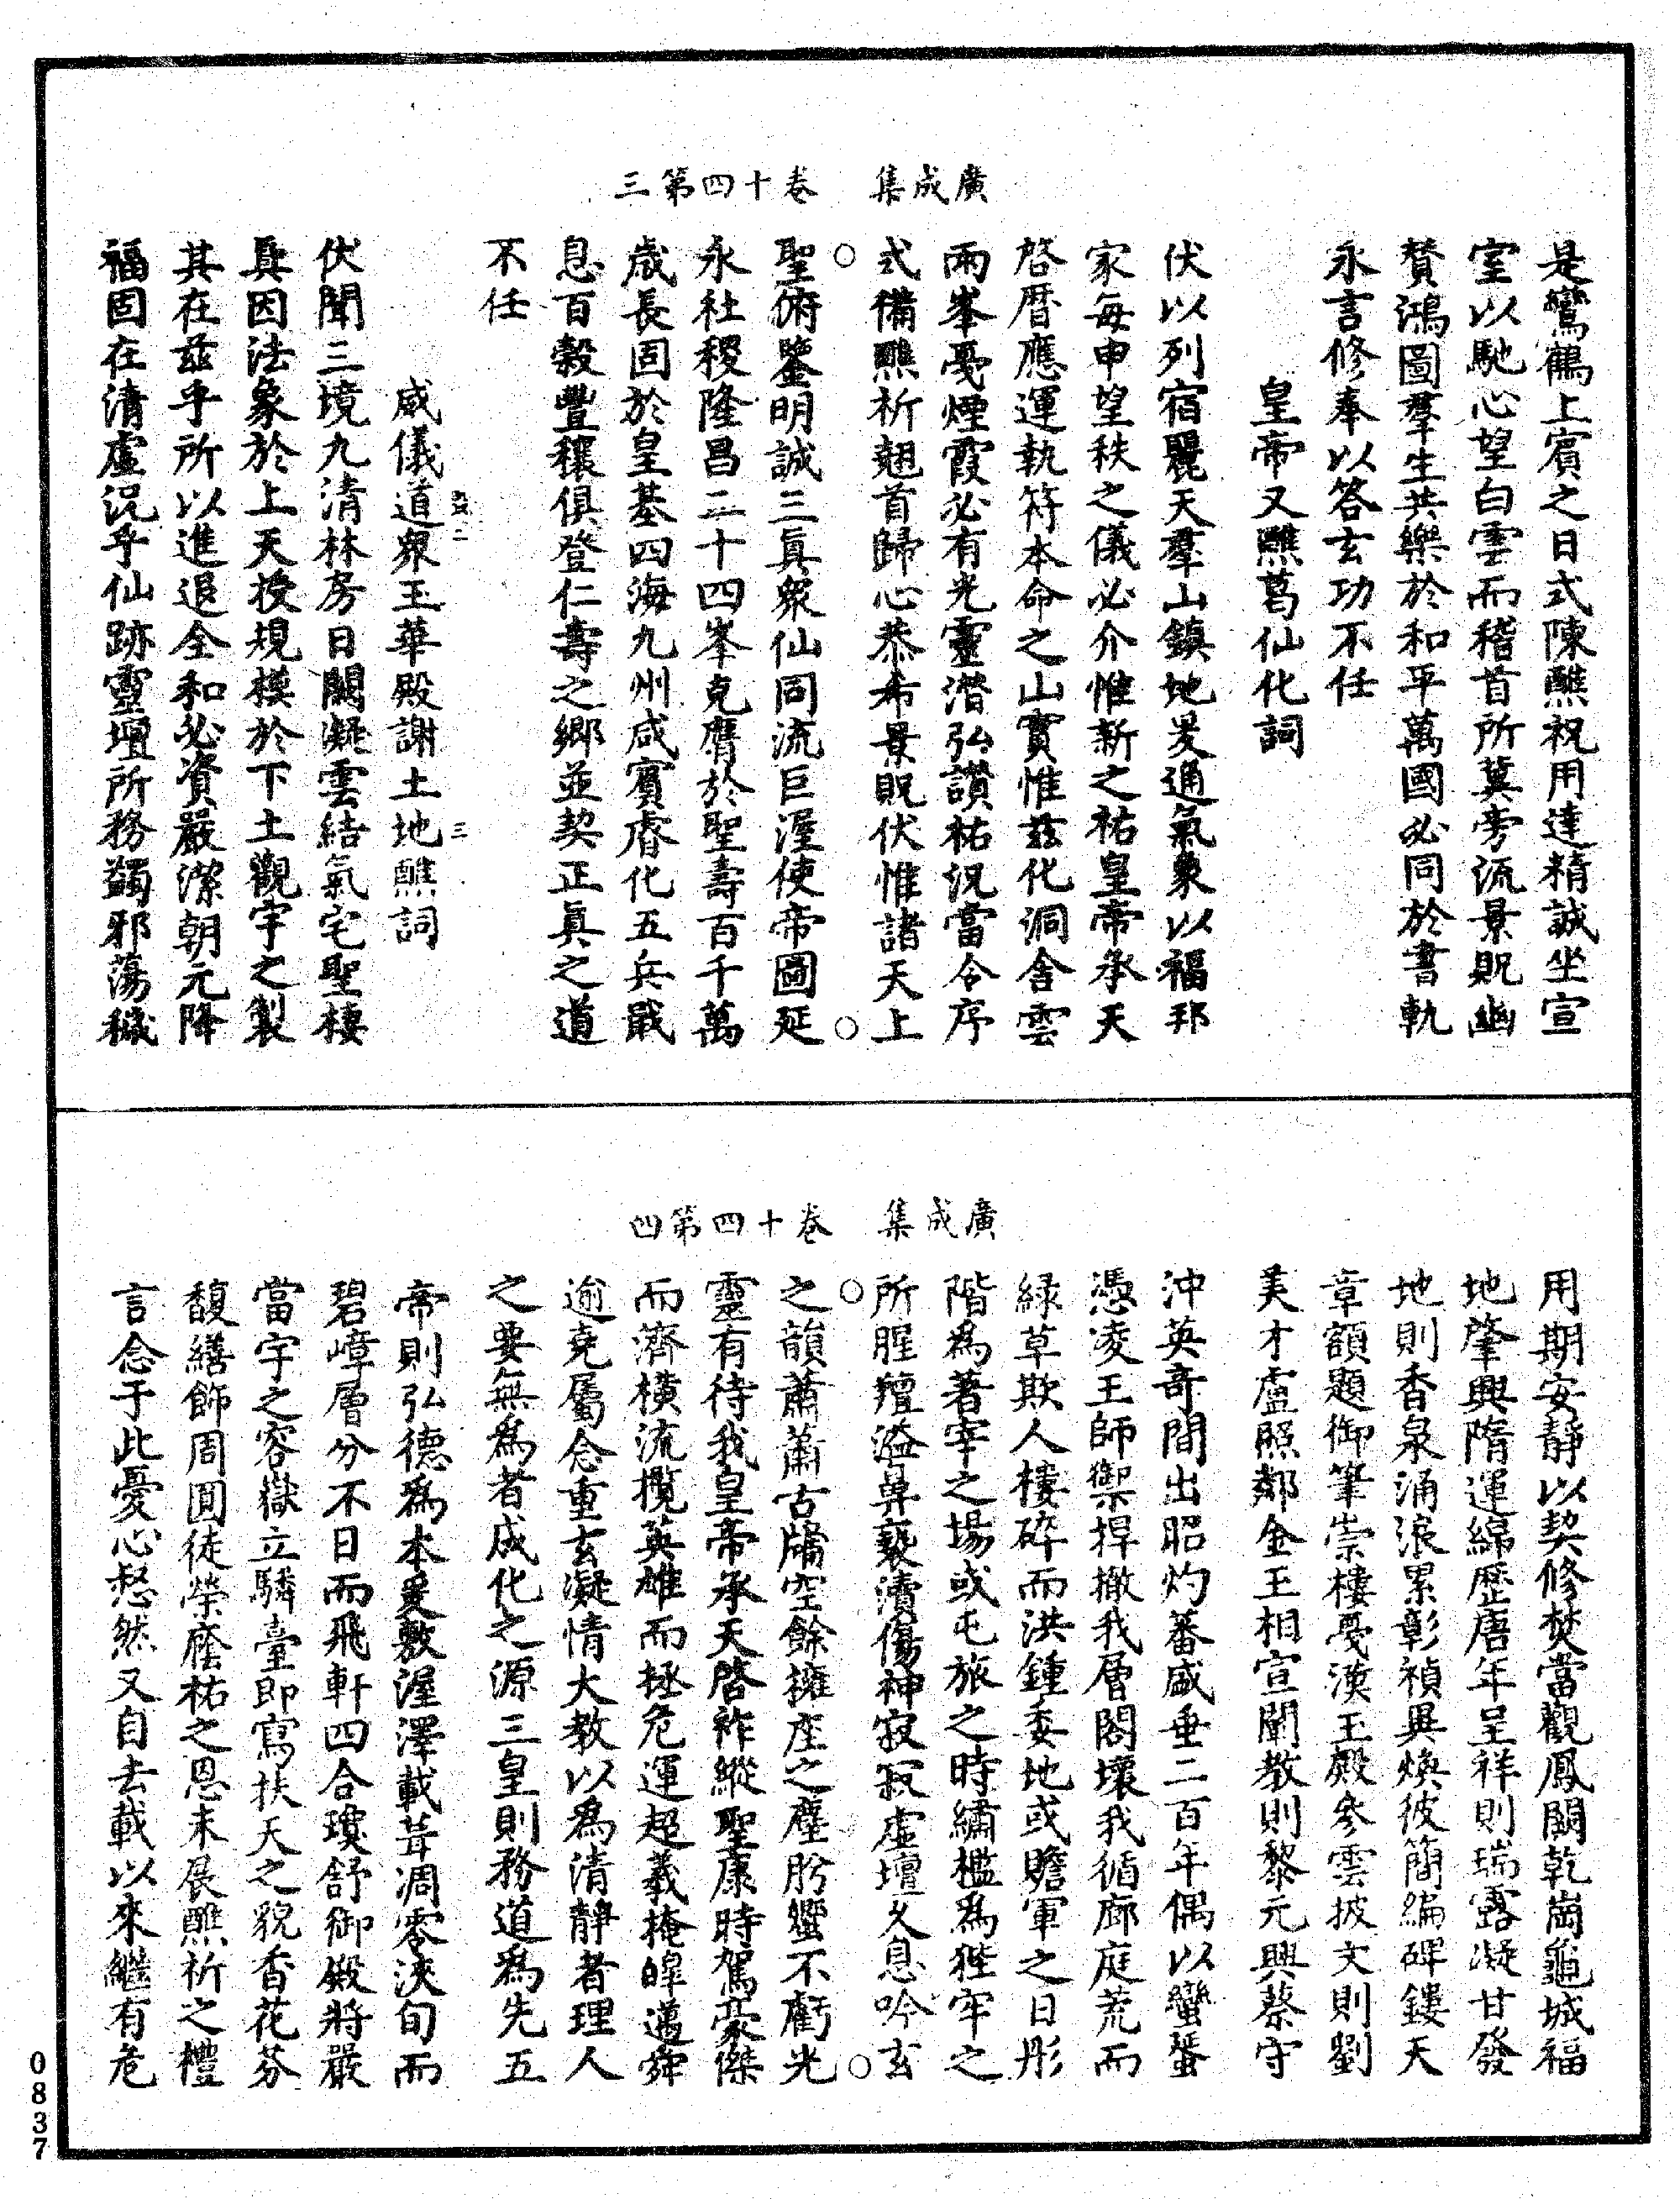 廣成集　卷十四第三
是鸞鶴上賓之日式陳醮祝用達精誠坐宣
室以馳心望白雲而稽首所冀旁流景貺幽
贊鴻圖羣生共樂於和平萬國必同於書軌
永言修奉以答玄功不任
皇帝又醮葛仙化詞
伏以列宿麗天羣山鎮地爰通氣象以福邦
家每申望秩之儀必介惟新之祐皇帝承天
啓曆應運執符本命之山實惟茲化洞舍雲
雨峯戞煙霞必有光靈潛弘讚祐況當令序
式備醮祈翹首歸心恭希景貺伏惟諸天上
聖俯鑒明誠三眞衆仙同流巨渥使帝圖延
永社稷隆昌二十四峯克膺於聖壽百千萬
歲長固於皇基四海九州咸賓睿化五兵戢
息百穀豐穰俱登仁壽之鄉並契正眞之道
不任
威儀道衆玉華殿謝土地醮詞
伏聞三境九清林房日闕凝雲結氣宅聖棲
眞因法象於上天授規模於下土觀宇之製
其在茲乎所以進退全和必資嚴潔朝元降
福固在清虛況乎仙跡靈壇所務蠲邪蕩穢
廣成集　卷十四第四
用期安靜以契修焚當觀鳳闕乾崗龜城福
地肇興隋運綿歷唐年呈祥則瑞露凝甘發
地則香泉涌浪累彰禎異煥彼簡編碑鏤天
章額題御筆崇樓戞漢玉殿參雲披文則劉
美才盧照鄰金玉相宣闡教則黎元興蔡守
沖英奇間出昭灼蕃盛垂二百年偶以蠻蜑
憑凌王師禦捍撤我層閣壞我循廊庭荒而
緑草欺人樓碎而洪鍾委地或贍軍之日彤
階爲著宰之場或屯旅之時繡檻爲狴牢之
所腥羶溢鼻褻瀆傷神寂寂虛壇久息吟玄
之韻蕭蕭古牖空餘擁座之塵肹蠁不虧光
靈有待我皇帝承天啓祚縱聖康時駕豪傑
而濟橫流攬英雄而拯危運超羲掩皥邁舜
逾堯屬念重玄凝情大教以爲清靜者理人
之要無爲者成化之源三皇則務道爲先五
帝則弘德爲本爰敷渥澤載葺凋零浹旬而
碧嶂層分不日而飛軒四合瓊舒御殿將嚴
當宇之容嶽立驎臺即寫扶天之貌香花芬
馥繕飾周圓徒榮廕祐之恩未展醮祈之禮
言念于此憂心惄然又自去載以來繼有危
0837